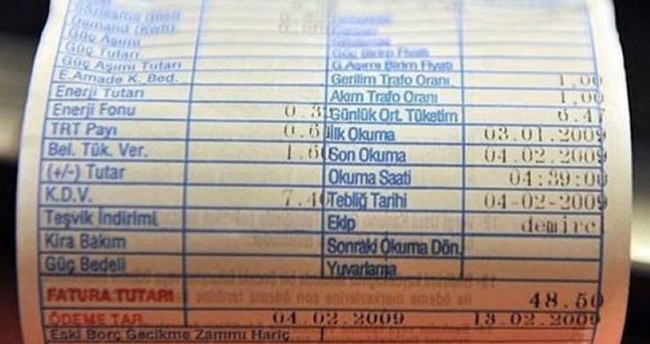 Güç Aşımı
Güç Tutarı Güç Birim Fiyatı
Güç Aşımı Tutarı G.Aşımı Birim Fiyatı
E.Amade K. Bed. Gerilim Trafo Oranı 1,00
Enerji Tutarı Akım Trafo Oranı 1,00
Enerji Fonu Günlük Ort. Tüketim 6.47
TRT Payı İlk Okuma 03.01.2009
Bel. Tük. Ver. Son Okuma 04.02.2009
(+/-) Tutar Okuma Saati 04:39:00
K.D.V. Tebliğ Tarihi 04-02-2009
Teşvik İndirimi Ekip demirel
Kira Bakım Sonraki Okuma Dön.
Güç Bedeli Yuvarlama
FATURA TUTARI 48.50
ÖDEME TAR. 04.02.2009 13.02.2009
Eski Borç Gecikme Zammı Hariç